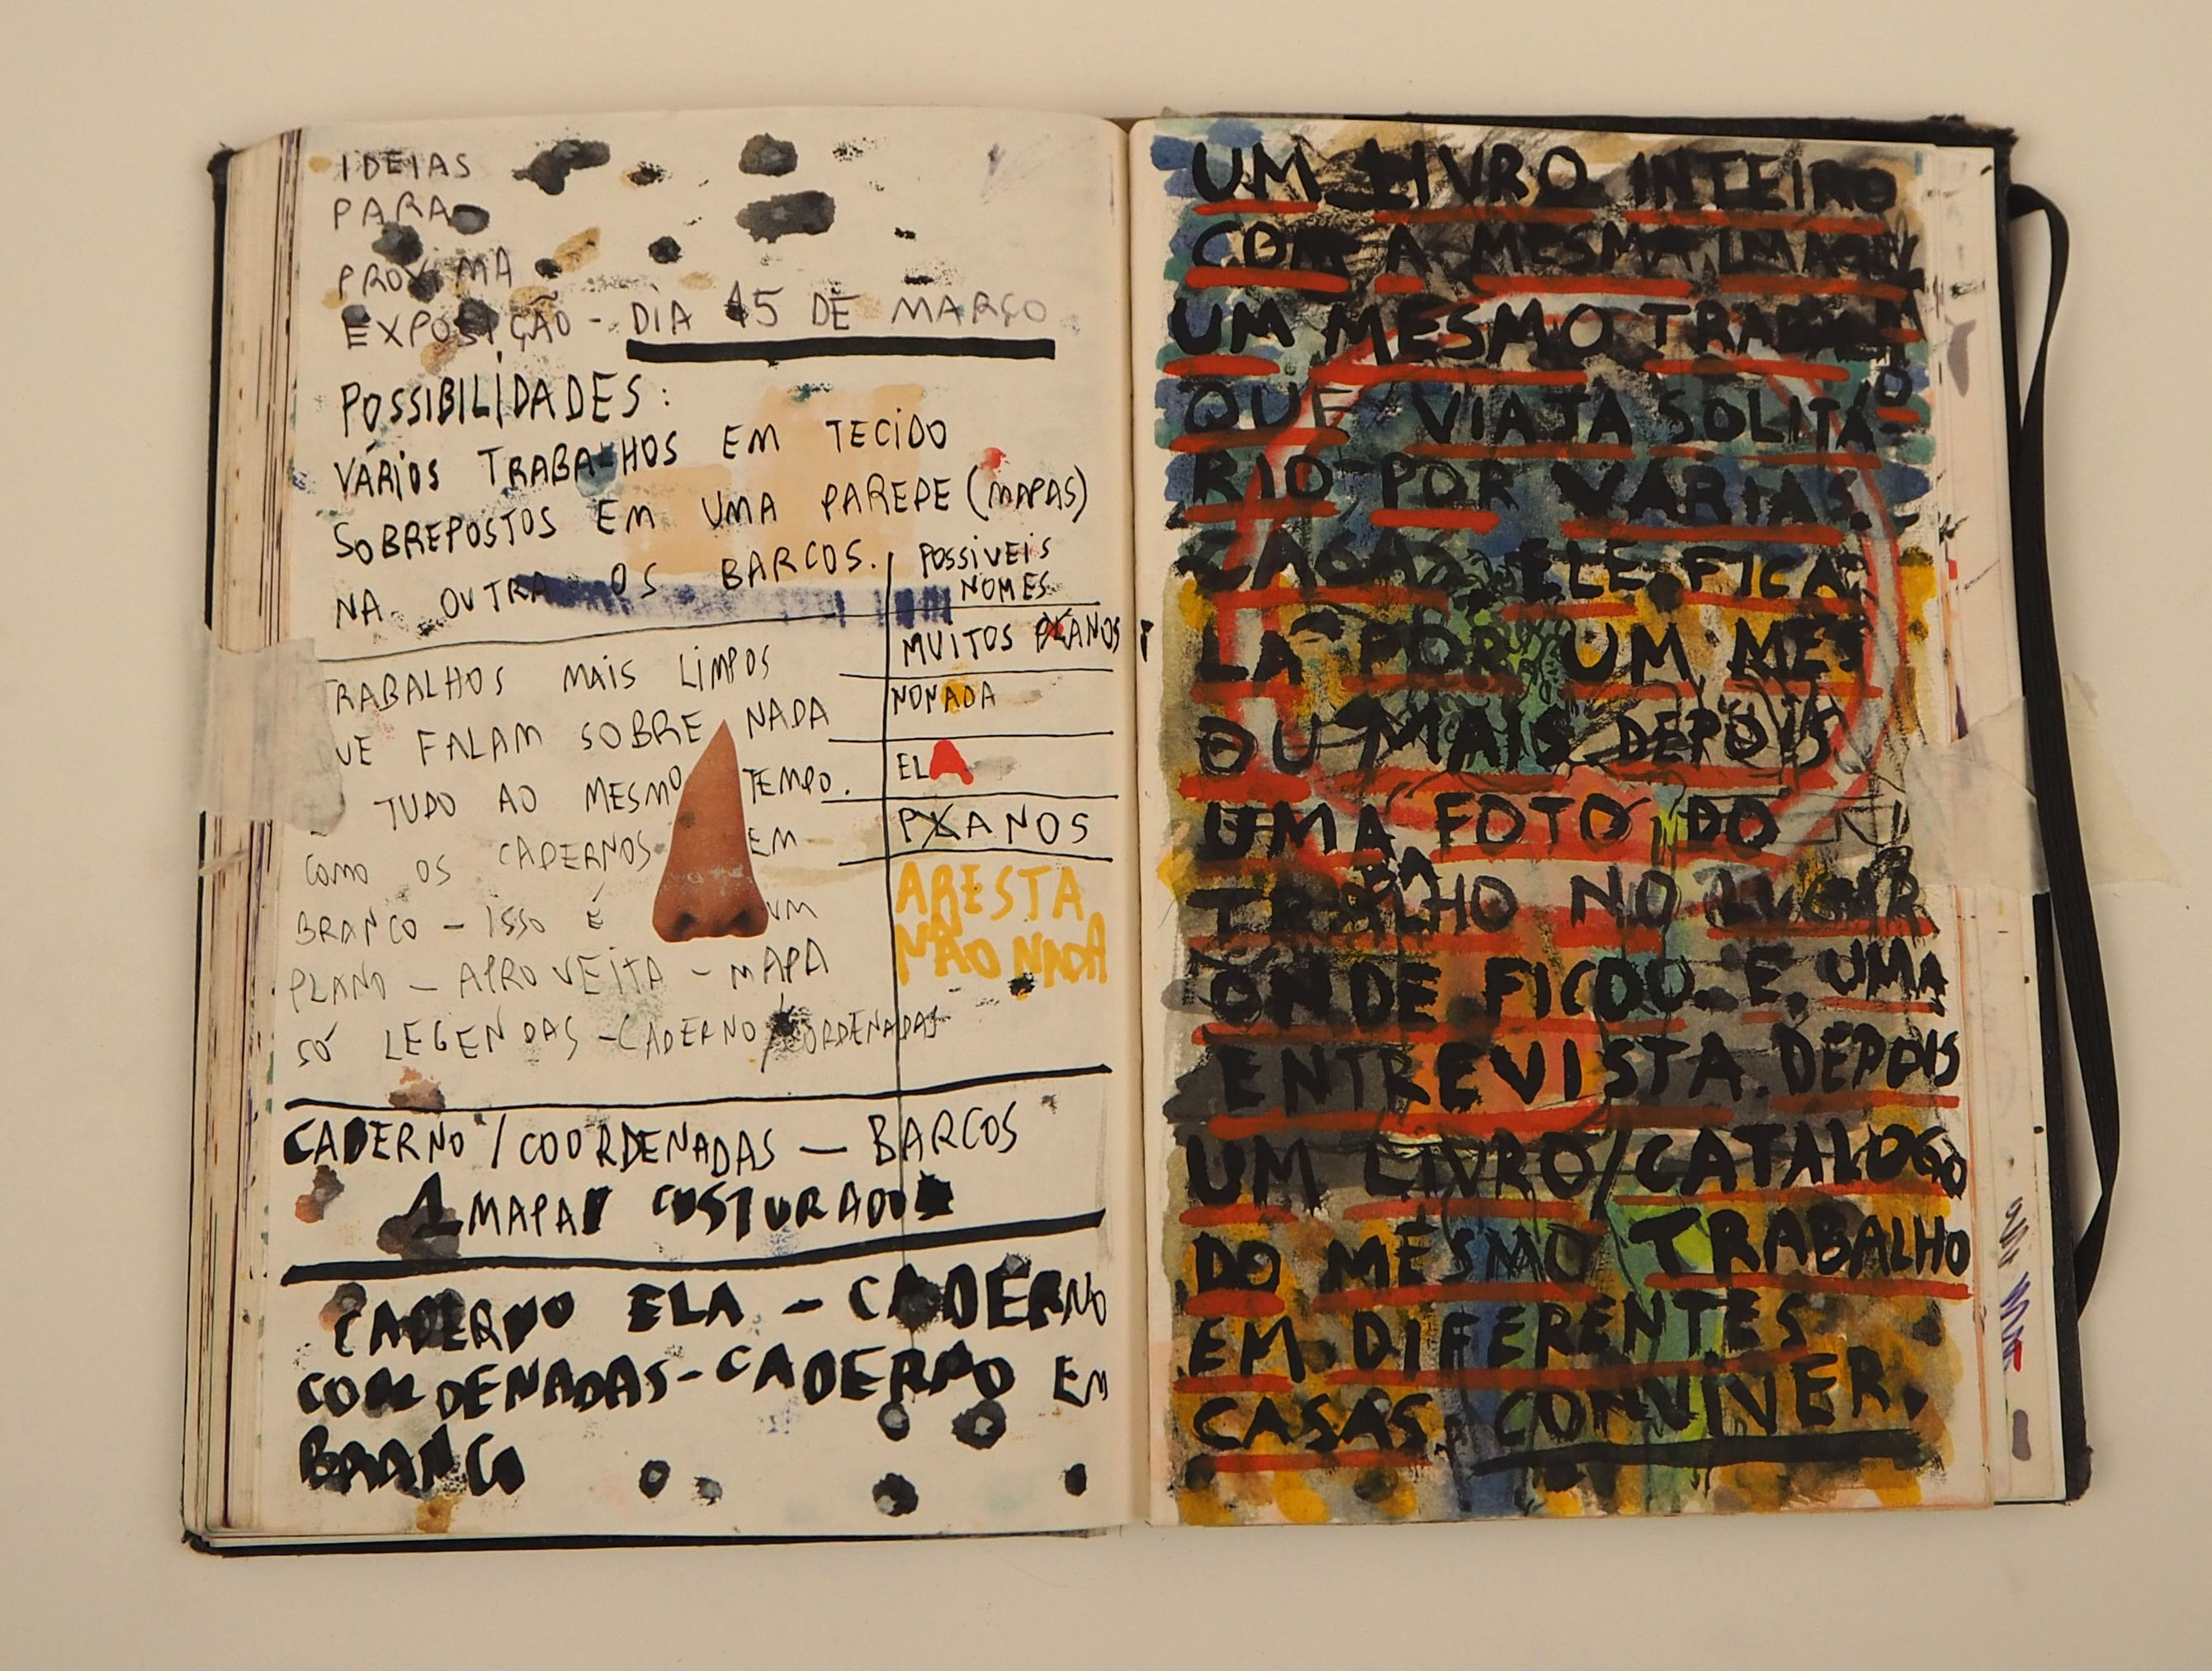 IDEIAS
PARA
PROXIMA
EXPOSIÇÃO - DIA 15 DE MARÇO
POSSIBILIDADES:
VÁRIOS TRABALHOS EM TECIDO
SOBREPOSTOS EM UMA PAREDE (MAPAS)
NA OUTRA OS BARCOS.
POSSIVEIS
NOMES
MUITOS PLANOS
NONADA
ELA
PLANOS
ARESTA
NÃO NADA
TRABALHOS MAIS LIMPOS
UE FALAM SOBRE NADA
TUDO AO MESMO TEMPO.
COMO OS CADERNOS EM
BRANCO - ISSO É UM
PLANO - APROVEITA - MAPA
SÓ LEGENDAS - CADERNO/COORDENADAS
CADERNO/COORDENADAS - BARCOS
1 MAPA COSTURADO
CADERNO ELA - CADERNO
COORDENADAS - CADERNO EM
BRANCO
UM LIVRO INTEIRO
COM A MESMA IMAGEM
UM MESMO TRABALHO
QUE VIAJA SOLITÁ-
RIO POR VARIAS
CASAS. ELE FICA
LA POR UM MES
OU MAIS DEPOIS
UMA FOTO DO
TRABALHO NO LUGAR
ONDE FICOU. E UMA
ENTREVISTA. DEPOIS
UM LIVRO/CATALOGO
DO MESMO TRABALHO
EM DIFERENTES
CASAS. CONVIVER.